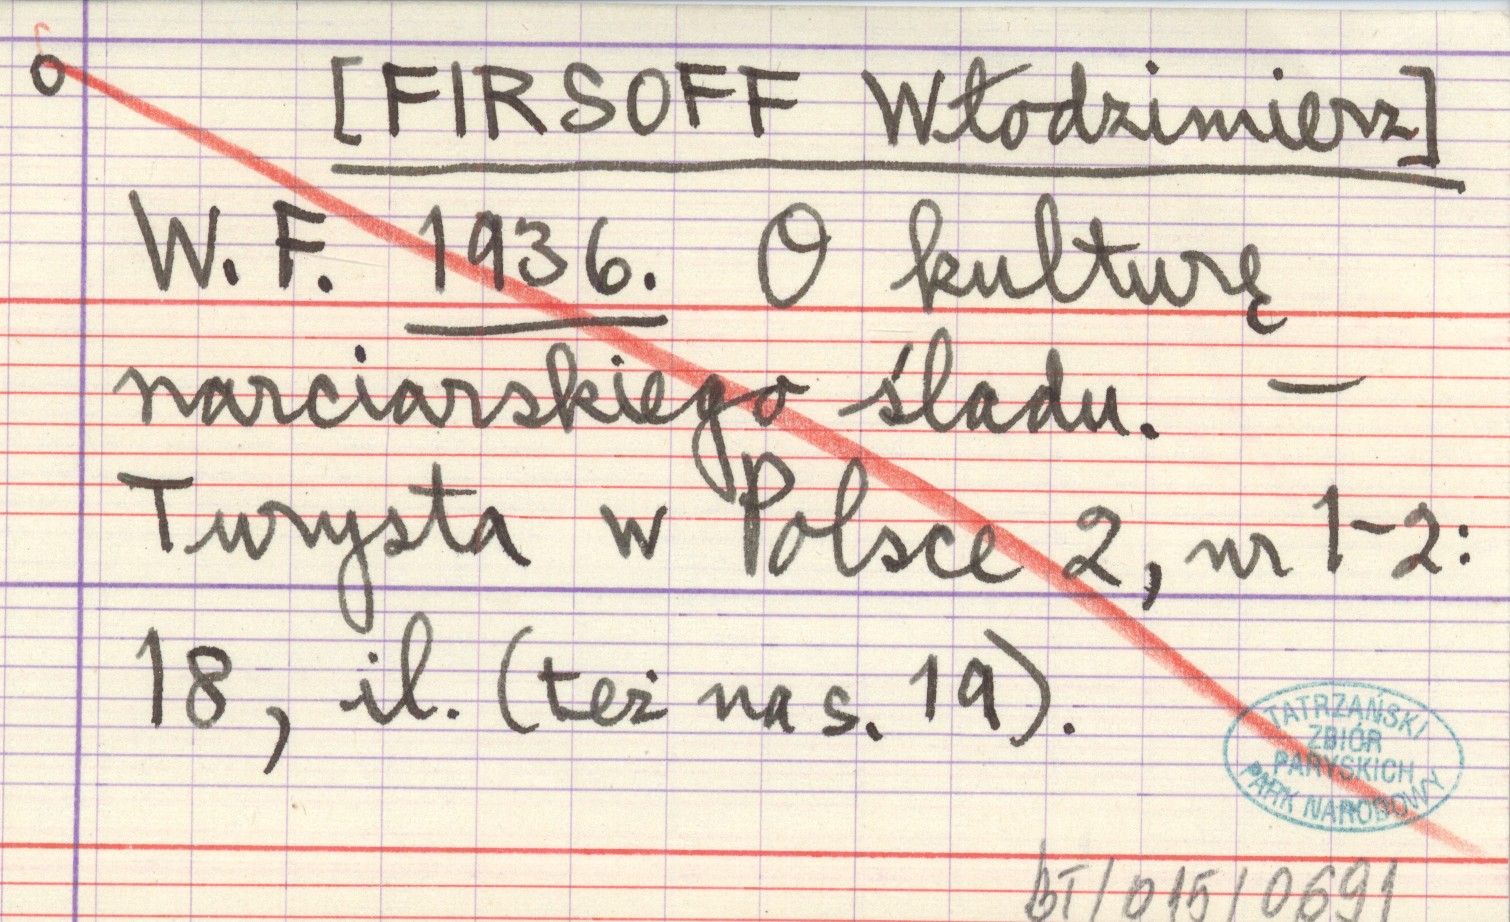 o [FIRSOFF Włodzimierz]
W. F. 1936. O kulturę
narciarskiego śladu. —
Turysta w Polsce 2, nr 1-2:
18, il. (też na s. 19).
TATRZAŃSKI
ZBIÓR
PARYSKICH
PARK NARODOWY
bT/015/0691